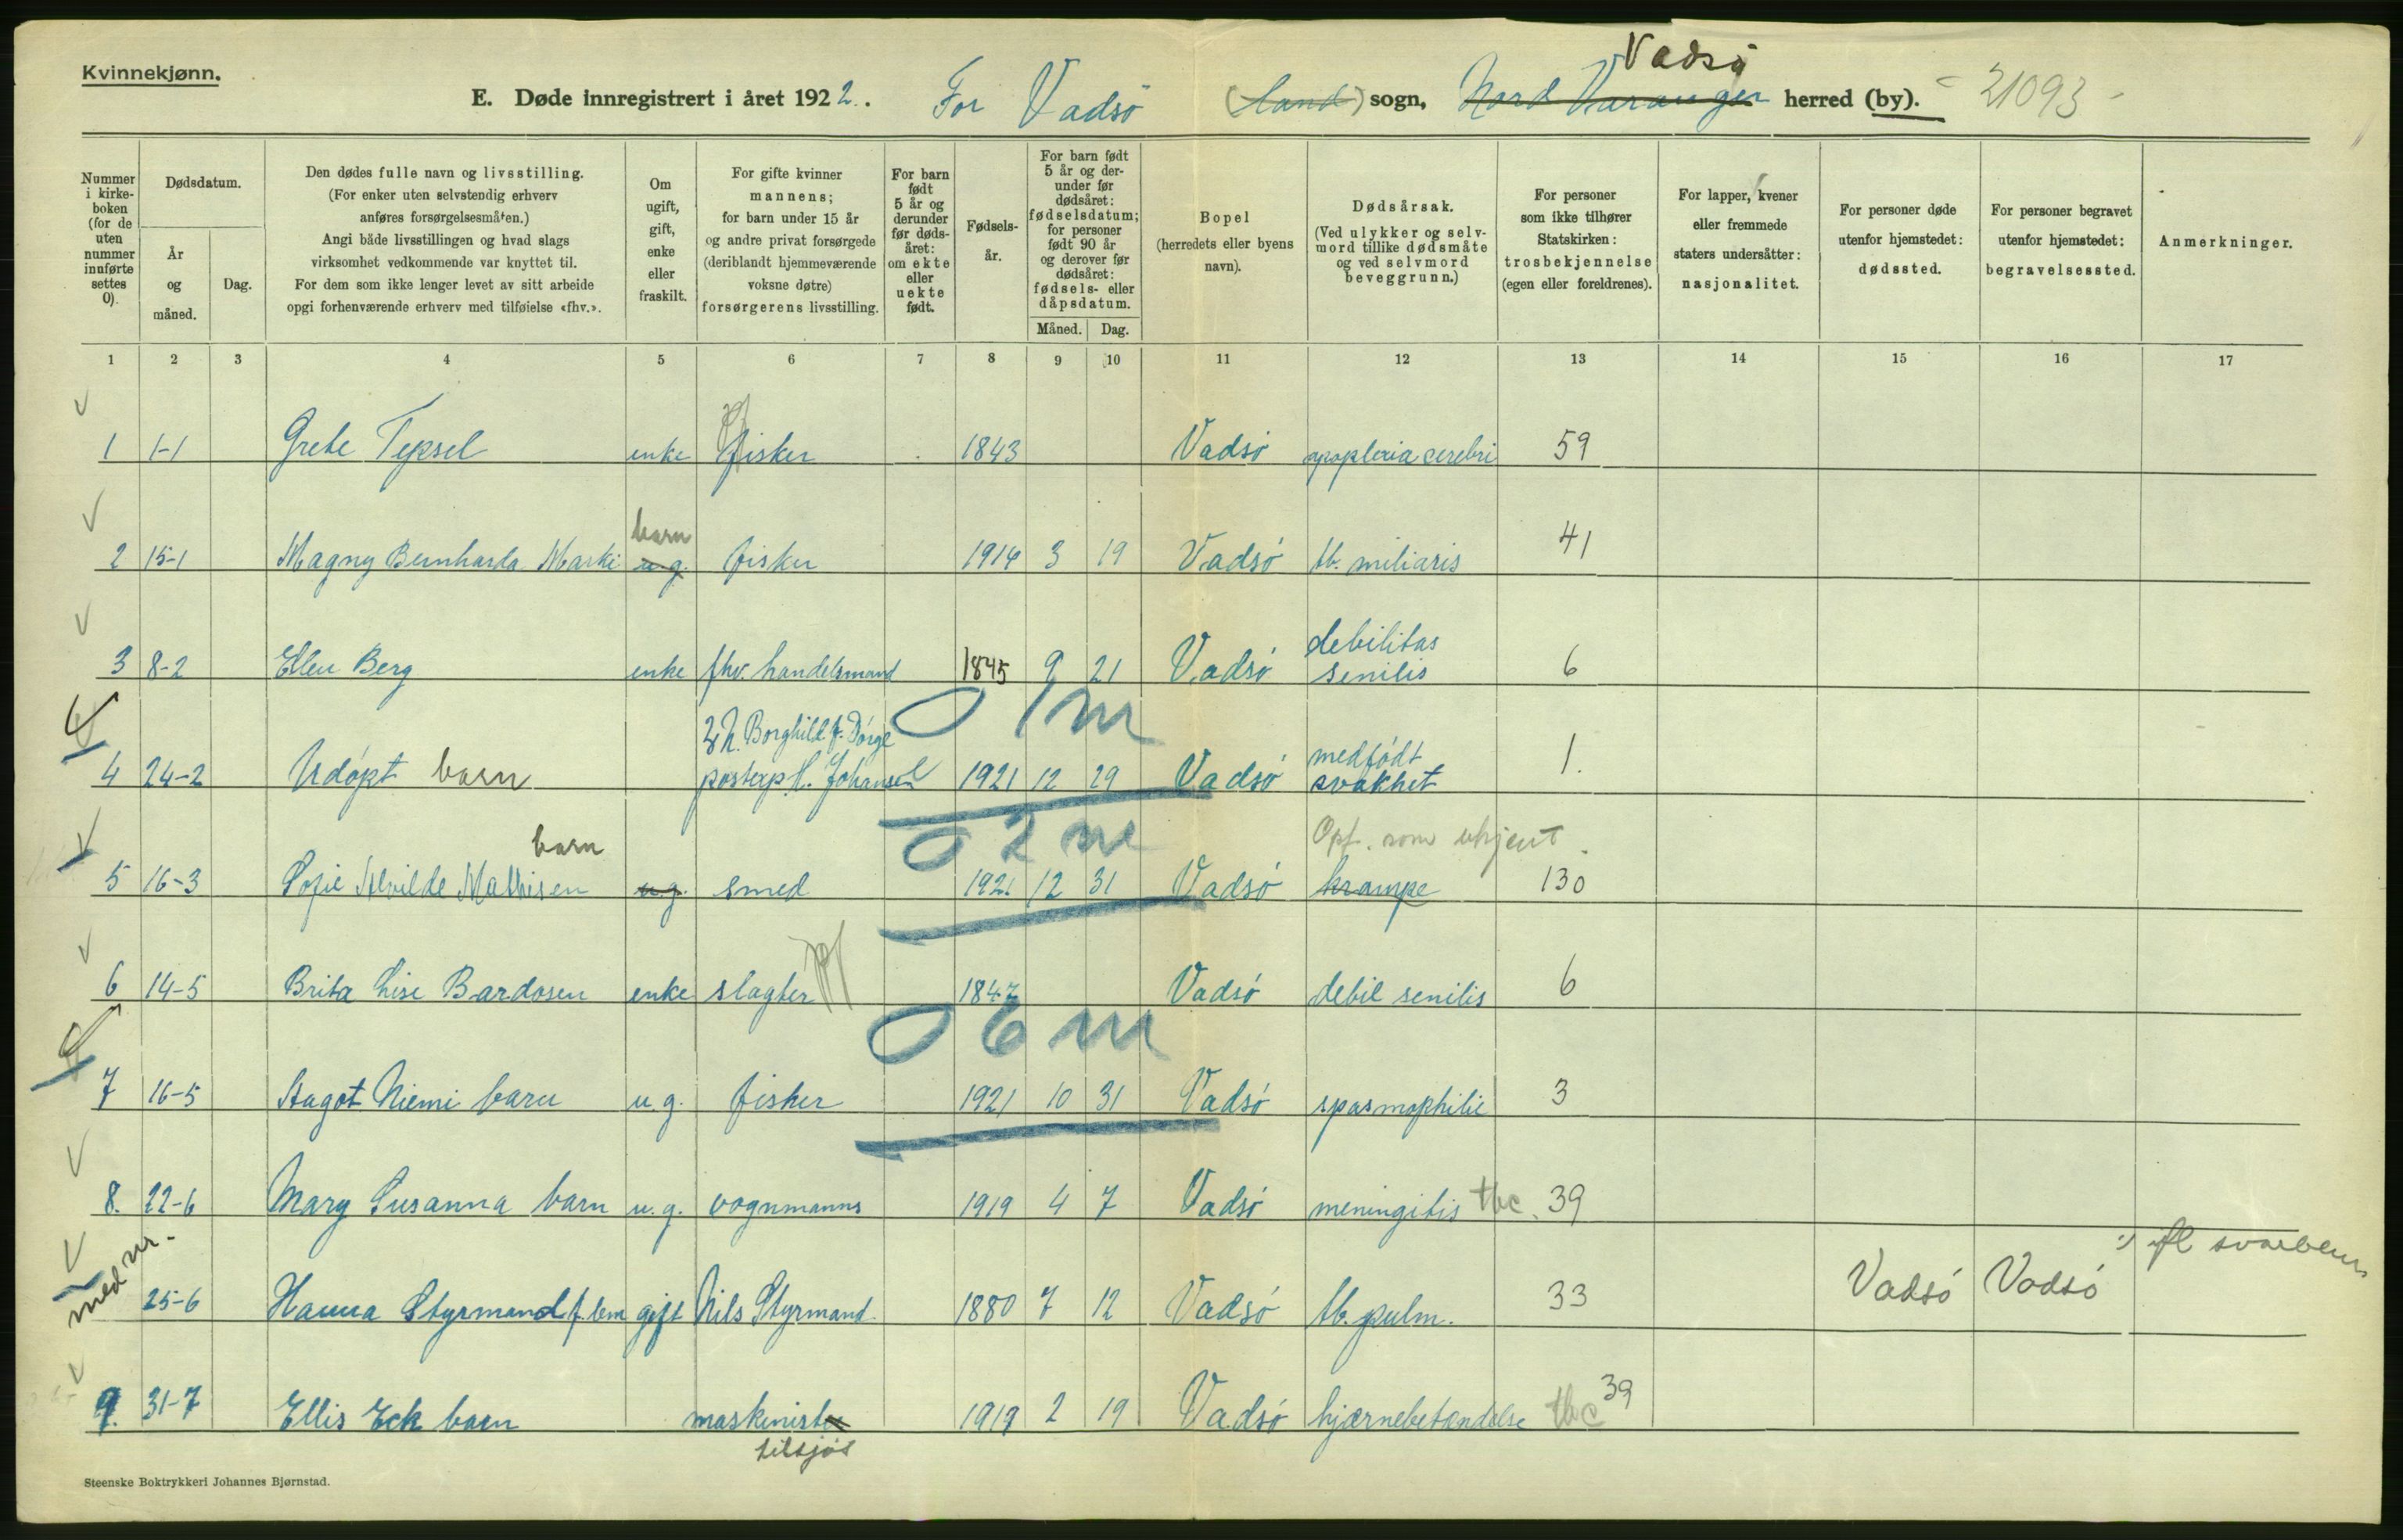 Kvinnekjønn.
E. Døde innregistrert i året 1922. For Vadsö (Land) sogn, Nord Varanger Vadsö herred (by). - 21093 -
Nummer i kirkeboken (for de uten nummer innførte settes 0).
Dødsdatum.
År og måned.
Dag.
Den dødes fulle navn og livsstilling.
(For enker uten selvstendig erhverv anføres forsørgelsesmåten.)
Angi både livsstillingen og hvad slags virksomhet vedkommende var knyttet til.
For dem som ikke lenger levet av sitt arbeide opgi forhenværende erhverv med tilføielse «fhv.».
Om ugift, gift, enke eller fraskilt.
For gifte kvinner mannens; for barn under 15 år og andre privat forsørgede (deriblandt hjemmeværende voksne døtre) forsørgerens livsstilling.
For barn født 5 år og derunder før dødsåret: om ekte eller uekte født.
Fødselsår.
For barn født 5 år og derunder før dødsåret: fødselsdatum; for personer født 90 år og derover før dødsåret: fødsels- eller dåpsdatum.
Måned. Dag.
Bopel (herredets eller byens navn).
Dødsårsak.
(Ved ulykker og selvmord tillike dødsmåte og ved selvmord beveggrunn.)
For personer som ikke tilhører Statskirken: trosbekjennelse (egen eller foreldrenes).
For lapper, kvener eller fremmede staters undersåtter: nasjonalitet.
For personer døde utenfor hjemstedet: dødssted.
For personer begravet utenfor hjemstedet: begravelsessted.
Anmerkninger.
1 2 3 4 5 6 7 8 9 10 11 12 13 14 15 16 17
1 1-1 Grete Tepsel enke fisker 1843 Vadsö apoplexia cerebri 59
barn
2 15-1 Magny Bernharda Marki u.g. fisker 1914 3 19 Vadsö tb. miliaris 41
debilitas
3 8-2 Ellen Berg enke fhv. handelsmand 1845 9 21 Vadsö senilis 6
0 1 m
Borghild f. Dörge medfödt
4 24-2 Udöpt barn postexp H. Johansen 1921 12 29 Vadsö svakhet 1.
0 2 m
barn Opf. som ukjent.
5 16-3 Sofie Alvilde Mathisen u.g. smed 1921 12 31 Vadsö krampe 130
6 14-5 Brita Lise Bardosen enke slagter 1847 Vadsö debil senilis 6
0 6 m
7 16-5 Aagot Niemi barn u.g. fisker 1921 10 31 Vadsö spasmophilie 3
8. 22-6 Mary Susanna barn u.g. vognmanns 1919 4 7 Vadsö meningitis tbc. 39
med nr.
25-6 Hanna Styrmand f. lem gift Nils Styrmand. 1880 7 12 Vadsö tb. pulm. 33 Vadsö Vadsö
9. 31-7 Ellis Eck barn maskinist 1919 2 19 Vadsö hjærnebetændelse tbc 39
tilsjøs
Steenske Boktrykkeri Johannes Bjørnstad.